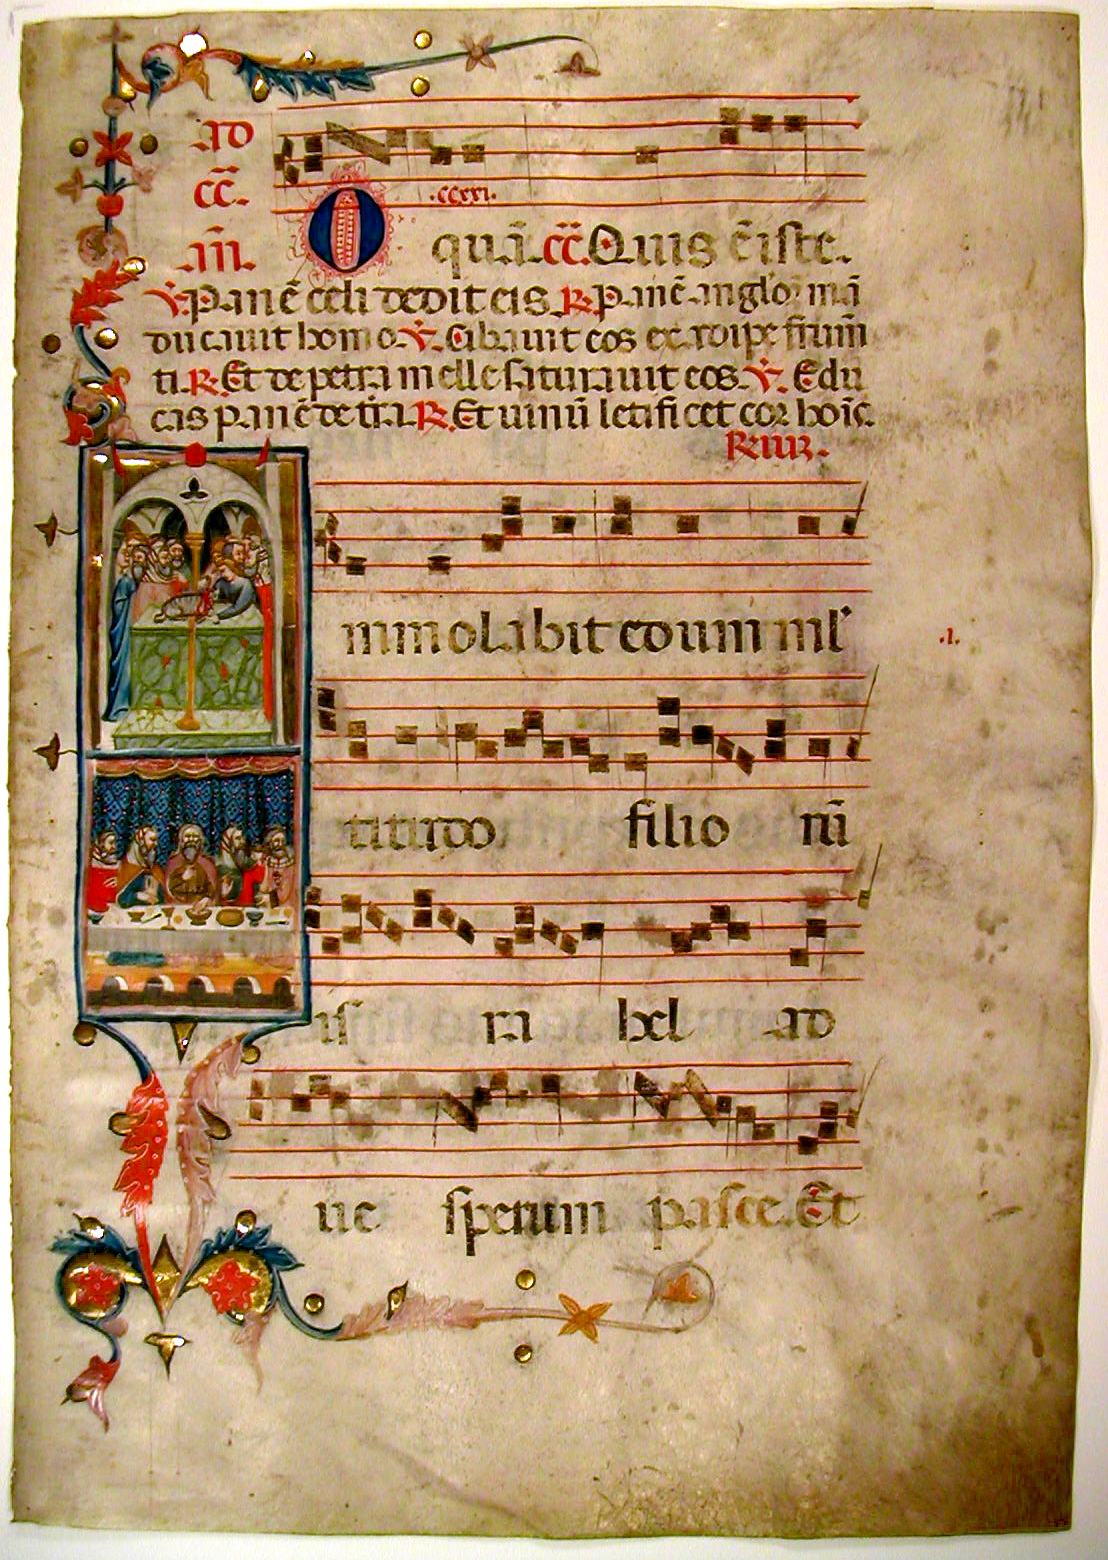 ad
cc̄.
.m̄.
O .ccxxi.
quā. cc̄. Quis ē iste.
℣. Panē celi dedit eis. ℟. Panē angloꝝ mā
ducauit homo. ℣. Cibauit eos ex adipe frum̄
ti. ℟. Et de petra melle saturauit eos. ℣. Edu
cas panē de tr̄a. ℟. Et uinū letificet cor hoīs.
mmolabit edum ml'
titudo filio rū
.l.
israhel ad
uesperum pasce. Et